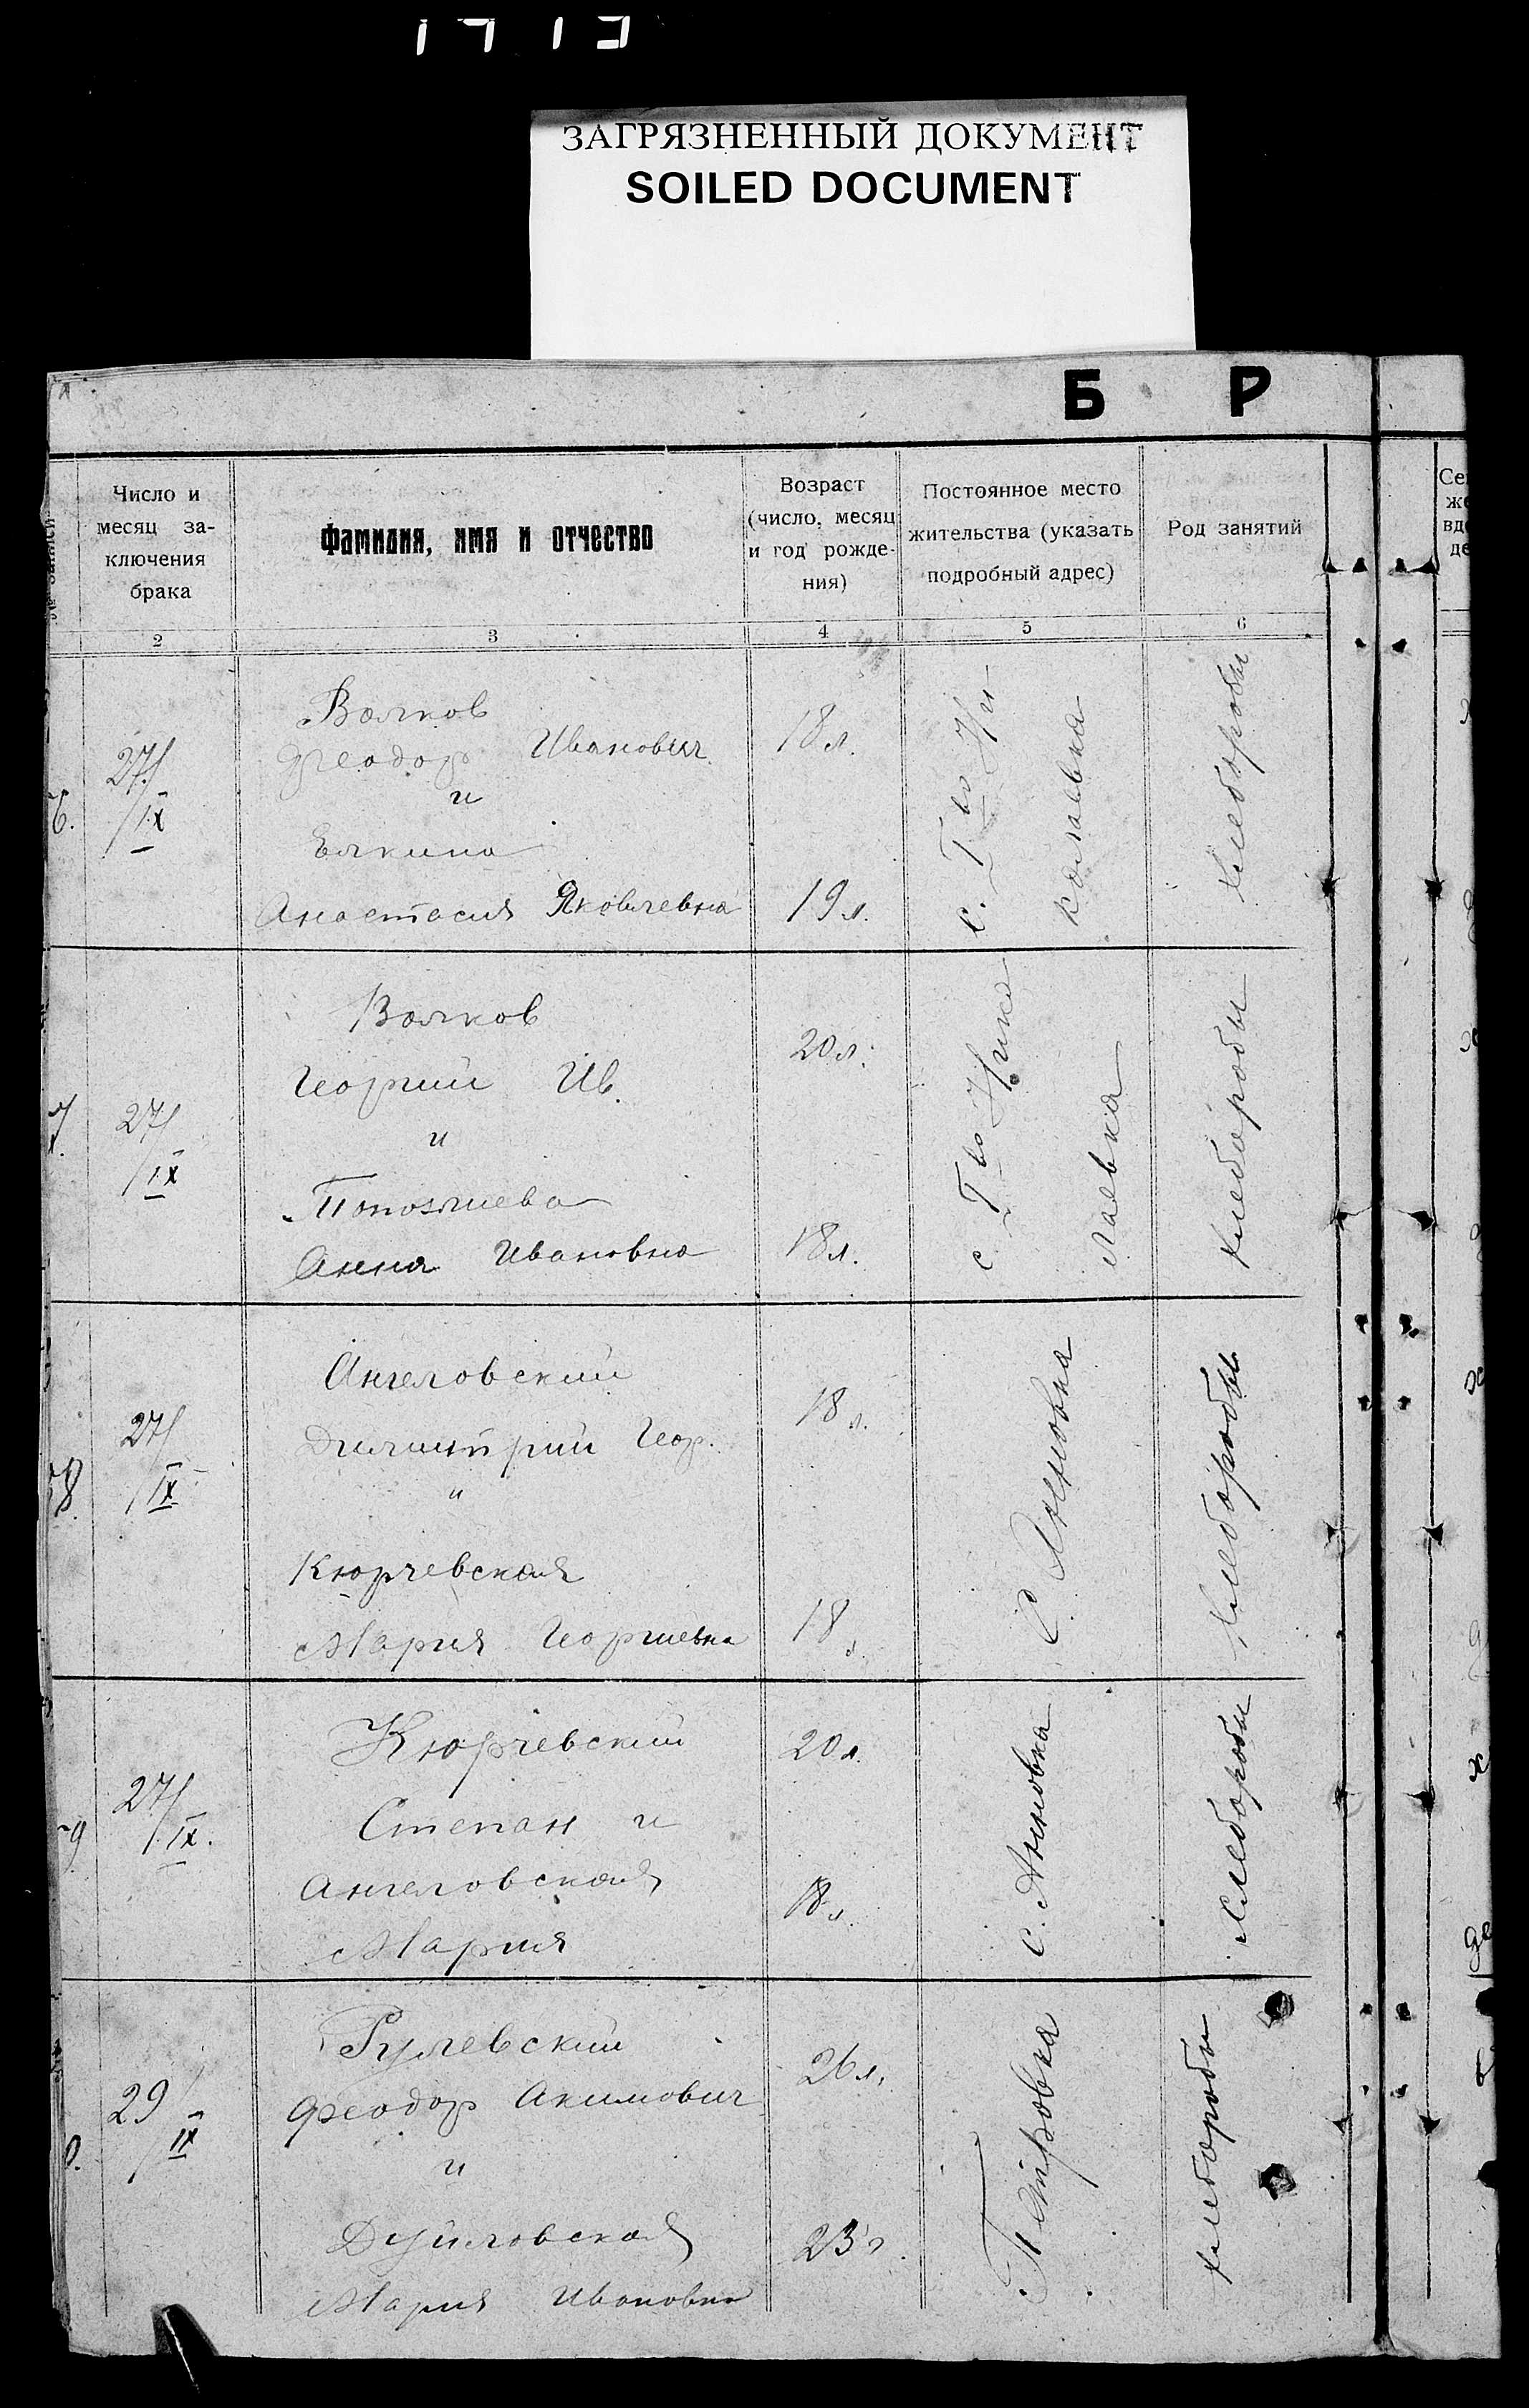 ЗАГРЯЗНЕННЫЙ ДОКУМЕНТ
SOILED DOCUMENT
Б Р
Число и месяц за-ключения брака
Фамилия, имя и отчество
Возраст (число, месяц и год рожде-ния)
Постоянное место жительства (указать подробный адрес)
Род занятий
2 3 4 5 6
6. 27/IX
Волков
Феодор Иванович 18 л.
и
Елкина
Анастасия Яковлевна 19 л.
с. Т во Ни-
колаевка
хлеборобы
7. 27/IX
Волков 20 л.
Георгий Ив.
и
Анна Ивановна 18 л.
с. Т во Нико
лаевка
хлеборобы
78. 27/IX
Ангеловский 18 л.
Димитрий Геор.
и
Кюрчевская
Мария Георгиевна 18 л.
С. Анновка
хлеборобы
79 27/IX.
Кюрчевский 20 л.
Степан и
Ангеловская 18 л.
Мария
с. Анновка
хлеборобы
0. 29/IX
Рулевский 26 л.
Феодор Акимович
и
23 г.
Мария Ивановна
Петровка
хлеборобы